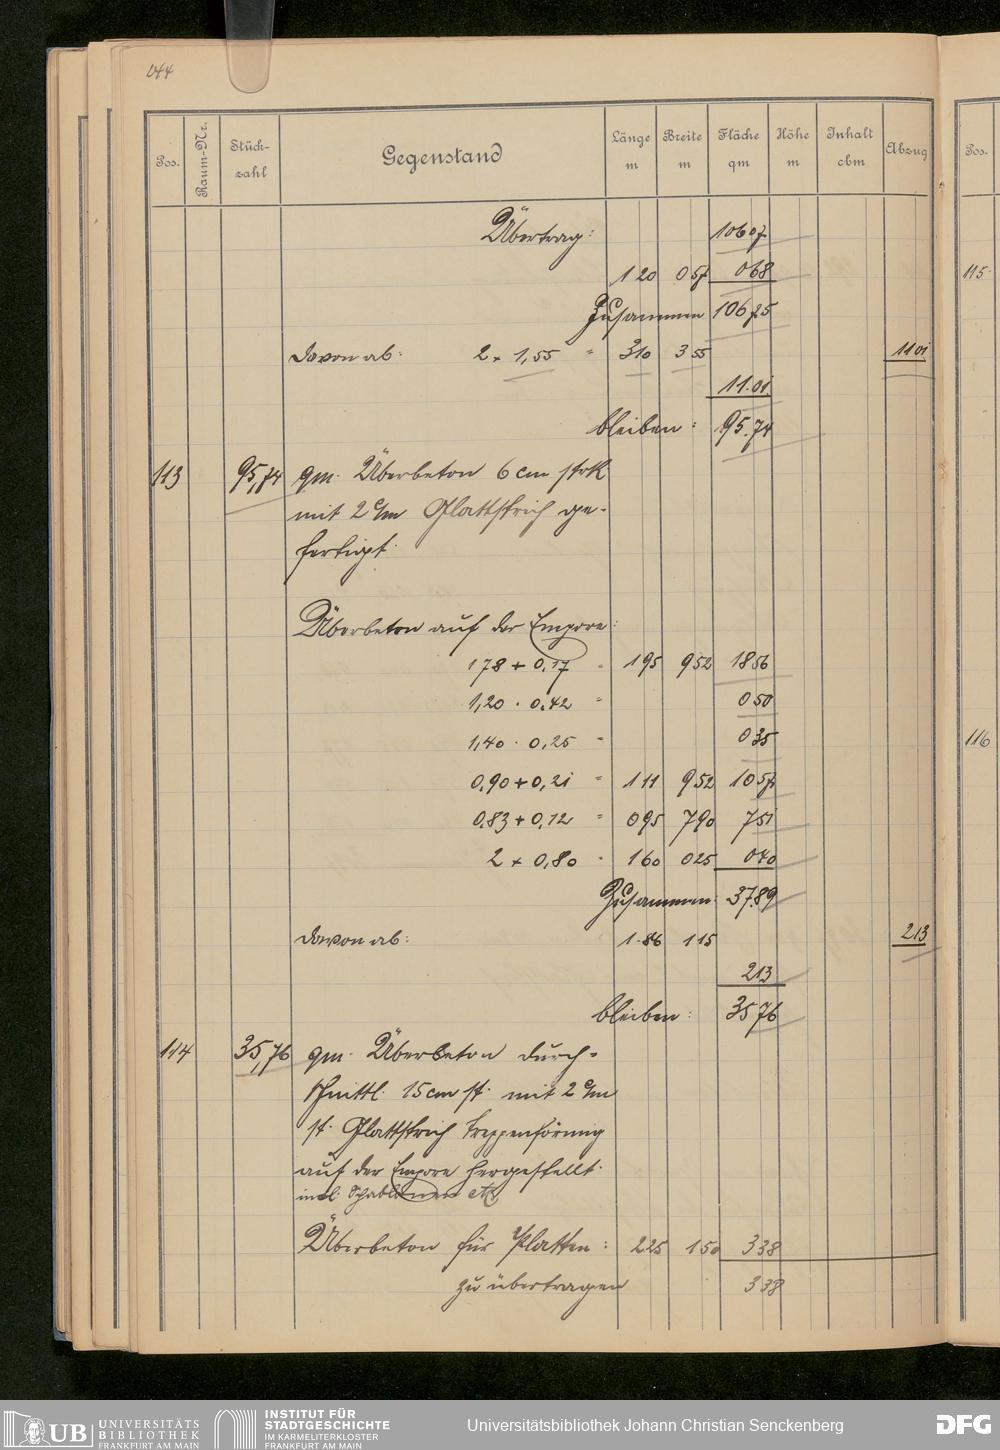 144
Pos. Raum-Nr. Stückzahl Gegenstand Länge m Breite m Fläche qm Höhe m Inhalt cbm Abzug
Übertrag: 106 07
1 20 0 57 0 68
Zusammen 106 75
davon ab: 2 × 1,55 = 3 10 3 55 11 01
11.01
bleiben: 95.74
113 95,74 qm. Überbeton 6 cm strk
mit 2 c/m Glattstrich ge-
fertigt.
Überbeton auf der Empore:
1 78 + 0,17 = 1 95 9 52 18 56
1,20 · 0,42 = 0 50
1,40 · 0,25 = 0 35
0,90 + 0,21 = 1 11 9 52 10 57
0,83 + 0,12 = 0 95 7 90 7 51
2 × 0,80 = 1 60 0 25 0 40
Zusammen 37 89
davon ab: 1.86 1 15 2 13
2 13
bleiben: 35 76
114 35,76 qm. Überbeton durch-
schnittl. 15 cm st. mit 2 c/m
st. Glattstrich treppenförmig
auf der Empore hergestellt.
incl. Schablonen etc.
Überbeton für Platten: 2 25 1 50 3 38
zu übertragen 3 38
Pos.
115
116
UB UNIVERSITÄTS
BIBLIOTHEK
FRANKFURT AM MAIN
INSTITUT FÜR
STADTGESCHICHTE
IM KARMELITERKLOSTER
FRANKFURT AM MAIN
Universitätsbibliothek Johann Christian Senckenberg
DFG